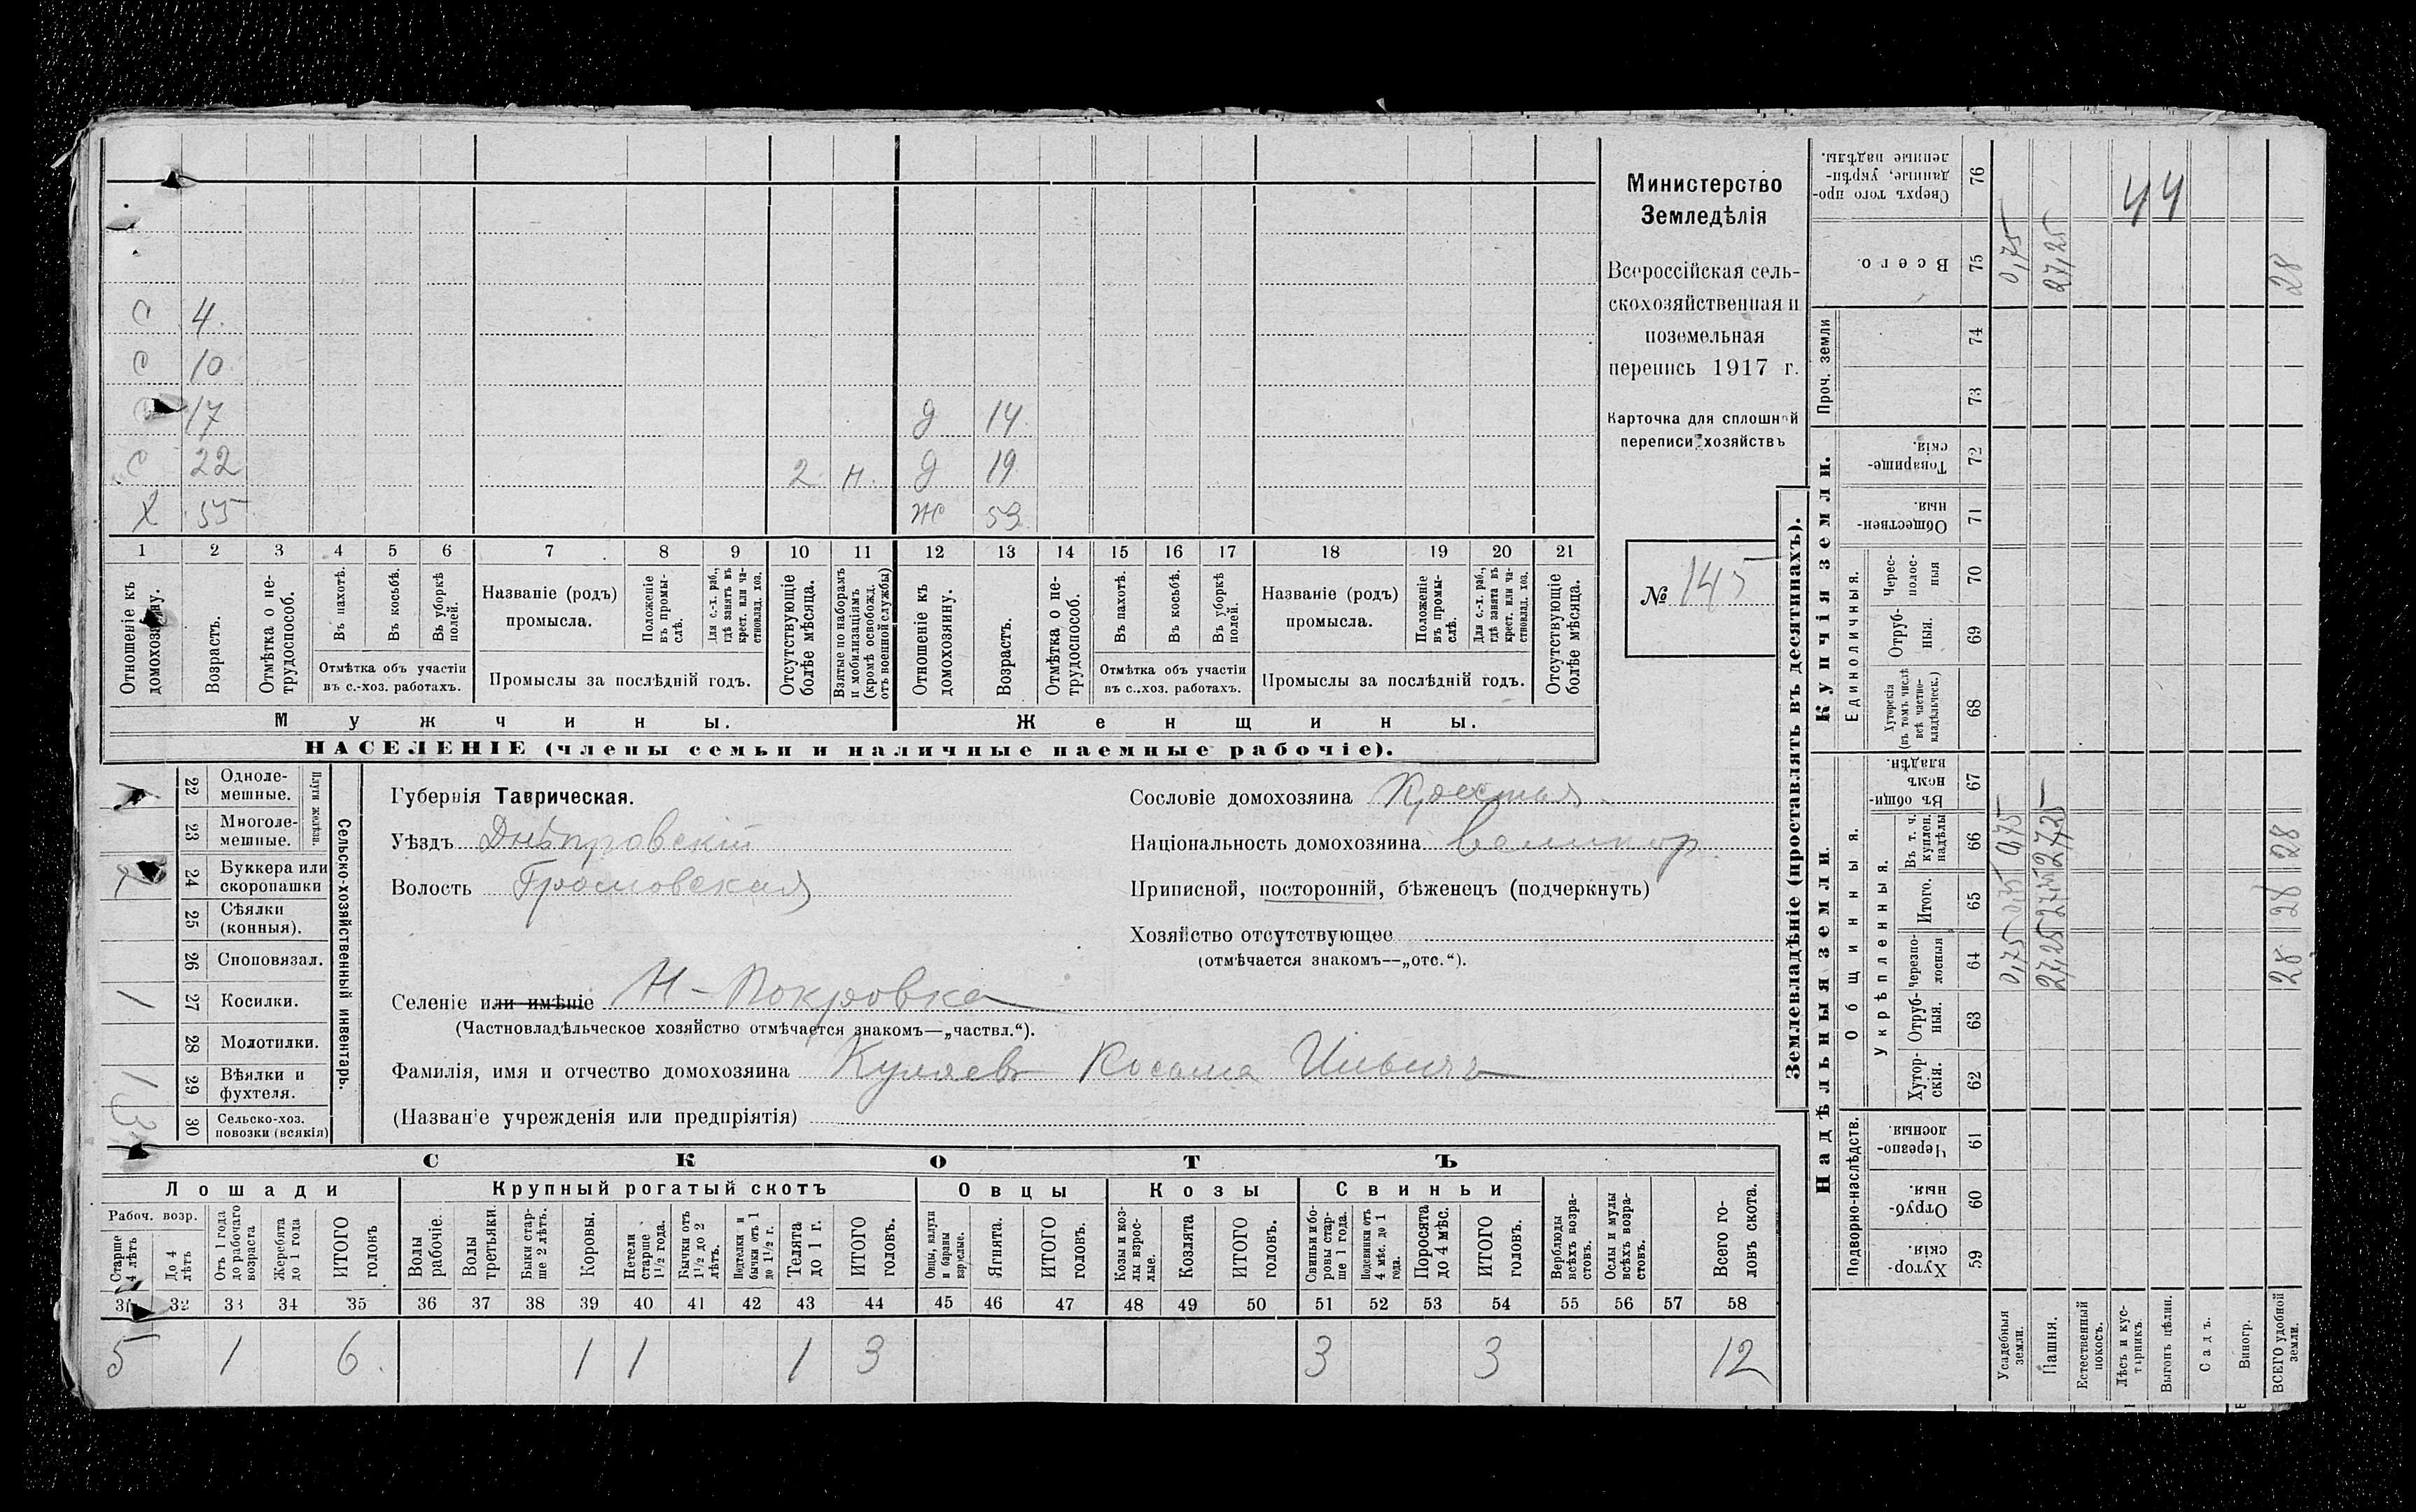 Министерство
Земледѣлія
Всероссійская сель-
скохозяйственная и
поземельная
перепись 1917 г.
Карточка для сплошной
переписи хозяйствъ
№ 145
С 4.
С 10
17 д 14
С 22 2 н. д 19
Х 55 ж 53
1 2 3 4 5 6 7 8 9 10 11 12 13 14 15 16 17 18 19 20 21
Отношеніе къ домохозяину.
Возрастъ.
Отмѣтка о не-трудоспособ.
Въ пахотѣ.
Въ косьбѣ.
Въ уборкѣ полей.
Отмѣтка объ участіи
въ с.-хоз. работахъ.
Названіе (родъ)
промысла.
Положеніе въ промы-слѣ.
Для с.-х. раб., гдѣ занятъ въ крест. или ча-стновлад. хоз.
Промыслы за послѣдній годъ.
Отсутствующіе болѣе мѣсяца.
Взятые по наборамъ и мобилизаціямъ (кромѣ освобожд. отъ военной службы)
Отношеніе къ домохозяину.
Возрастъ.
Отмѣтка о не-трудоспособ.
Въ пахотѣ.
Въ косьбѣ.
Въ уборкѣ полей.
Отмѣтка объ участіи
въ с.-хоз. работахъ.
Названіе (родъ)
промысла.
Положеніе въ промы-слѣ.
Для с.-х. раб., гдѣ занята въ крест. или ча-стновлад. хоз.
Промыслы за послѣдній годъ.
Отсутствующіе болѣе мѣсяца.
Мужчины.
Женщины.
НАСЕЛЕНІЕ (члены семьи и наличные наемные рабочіе).
Сельско-хозяйственный инвентарь.
Плуги желѣзн.
22 Одноле-мешные.
23 Многоле-мешные.
24 Буккера или скоропашки
25 Сѣялки (конныя).
26 Сноповязал.
1 27 Косилки.
28 Молотилки.
1 29 Вѣялки и фухтеля.
3 30 Сельско-хоз. повозки (всякія)
Губернія Таврическая.
Уѣздъ Днѣпровскій
Волость Громовская
Сословіе домохозяина Крестья.
Національность домохозяина великор.
Приписной, посторонній, бѣженецъ (подчеркнуть)
Хозяйство отсутствующее
(отмѣчается знакомъ—„отс.“).
Селеніе или имѣніе Н-Покровка
(Частновладѣльческое хозяйство отмѣчается знакомъ—„частвл.“).
Фамилія, имя и отчество домохозяина Куляевъ Косьма Ильичъ
(Названіе учрежденія или предпріятія)
СКОТЪ
Лошади
Крупный рогатый скотъ
Овцы
Козы
Свиньи
Рабоч. возр.
Старше 4 лѣтъ
До 4 лѣтъ
Отъ 1 года до рабочаго возраста
Жеребята до 1 года
ИТОГО головъ
Волы рабочіе.
Волы третьяки.
Быки стар-ше 2 лѣтъ.
Коровы.
Нетели старше 1½ года.
Бычки отъ 1½ до 2 лѣтъ.
Подтелки и бычки отъ 1 до 1½ г.
Телята до 1 г.
ИТОГО головъ.
Овцы, валухи и бараны взрослые.
Ягнята.
ИТОГО головъ.
Козы и коз-лы взрос-лые.
Козлята
ИТОГО головъ.
Свиньи и бо-ровы стар-ше 1 года.
Подсвинки отъ 4 мѣс. до 1 года.
Поросята до 4 мѣс.
ИТОГО головъ.
Верблюды всѣхъ возра-стовъ.
Ослы и мулы всѣхъ возра-стовъ.
Всего го-ловъ скота.
31 32 33 34 35 36 37 38 39 40 41 42 43 44 45 46 47 48 49 50 51 52 53 54 55 56 57 58
5 1 6. 1 1 1 3 3 3 12
Землевладѣніе (проставлять въ десятинахъ).
Надѣльныя земли
Купчія земли.
Проч. земли
Подворно-наслѣдств.
Общинныя.
Укрѣпленныя.
Единоличныя.
59 Хутор-скія.
60 Отруб-ныя.
61 Черезпо-лосныя.
62 Хутор-скія.
63 Отруб-ныя.
64 Черезпо-лосныя
65 Итого.
66 Въ т. ч. куплен. надѣлы
67 Въ общин-номъ владѣн.
68 Хуторскія (въ томъ числѣ всѣ частно-владѣльческ.)
69 Отруб-ныя.
70 Черес-полос-ныя
71 Обществен-ныя
72 Товарище-скія.
73
74
75 Всего.
76 Сверхъ того про-данные, укрѣп-ленные надѣлы.
Усадебныя земли. 0,75 0,75 0,75 0,75
Пашня. 27,25 27,25 27,25 27,25
Естественный покосъ.
Лѣсъ и кус-тарникъ.
Выгонъ цѣлин.
Садъ.
Виногр.
ВСЕГО удобной земли. 28 28 28 28
44